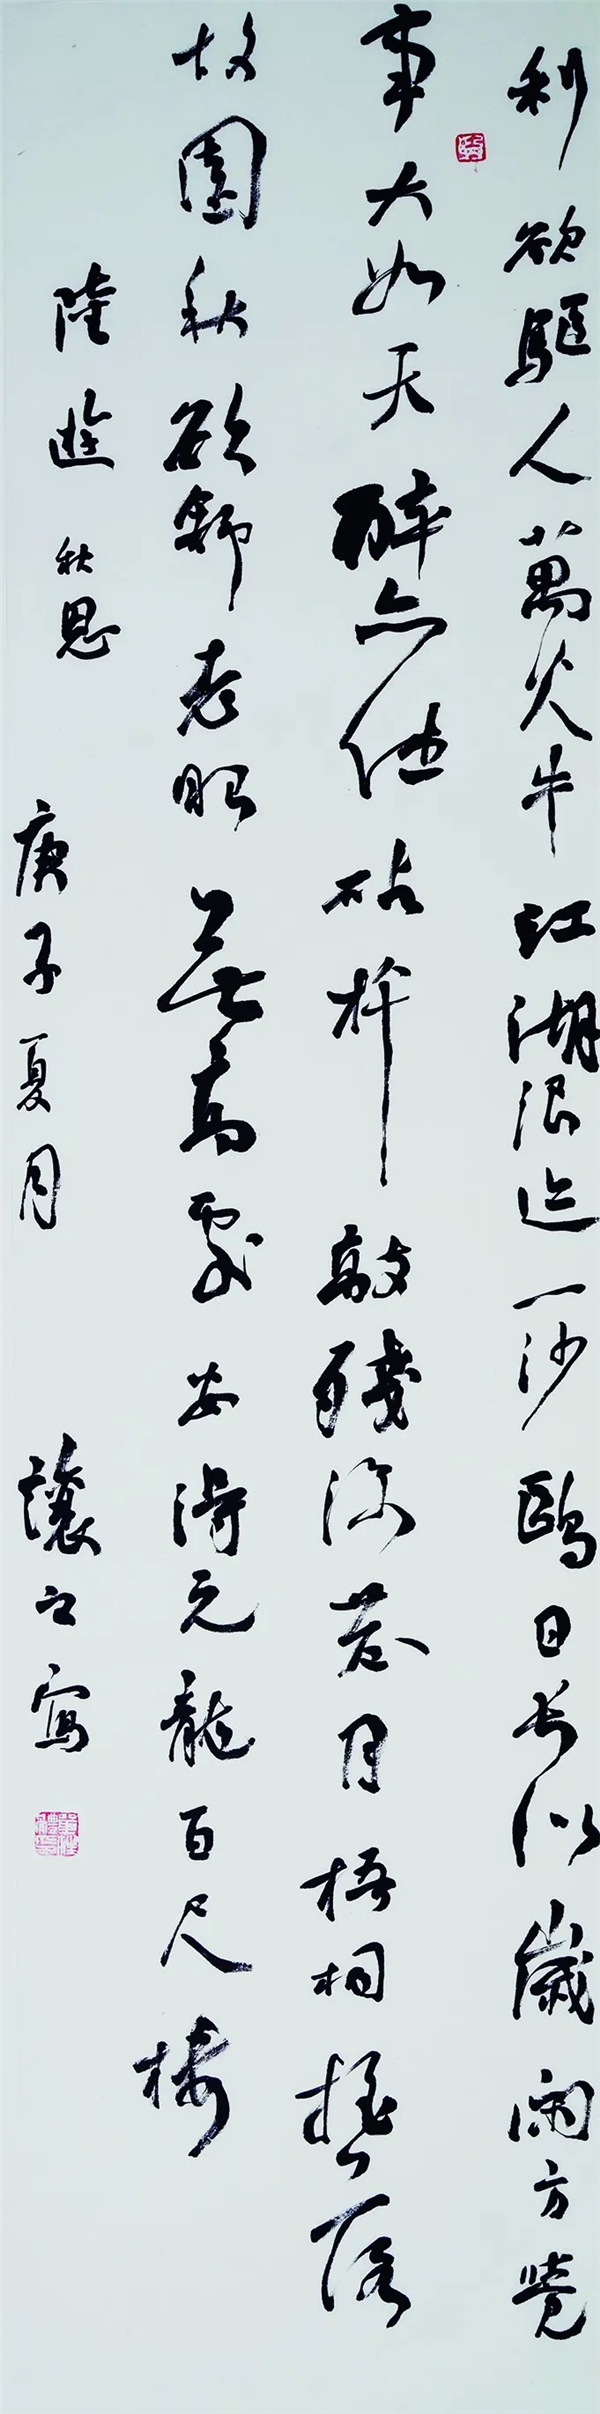 利欲驅人萬火牛江湖浪迹一沙鷗日長似歲閑方覺
事大如天醉亦休砧杵敲殘深巷月梧桐搖落
故園秋欲舒老眼無高處安得元龍百尺樓
陸遊秋思
庚子夏月 讓之寫